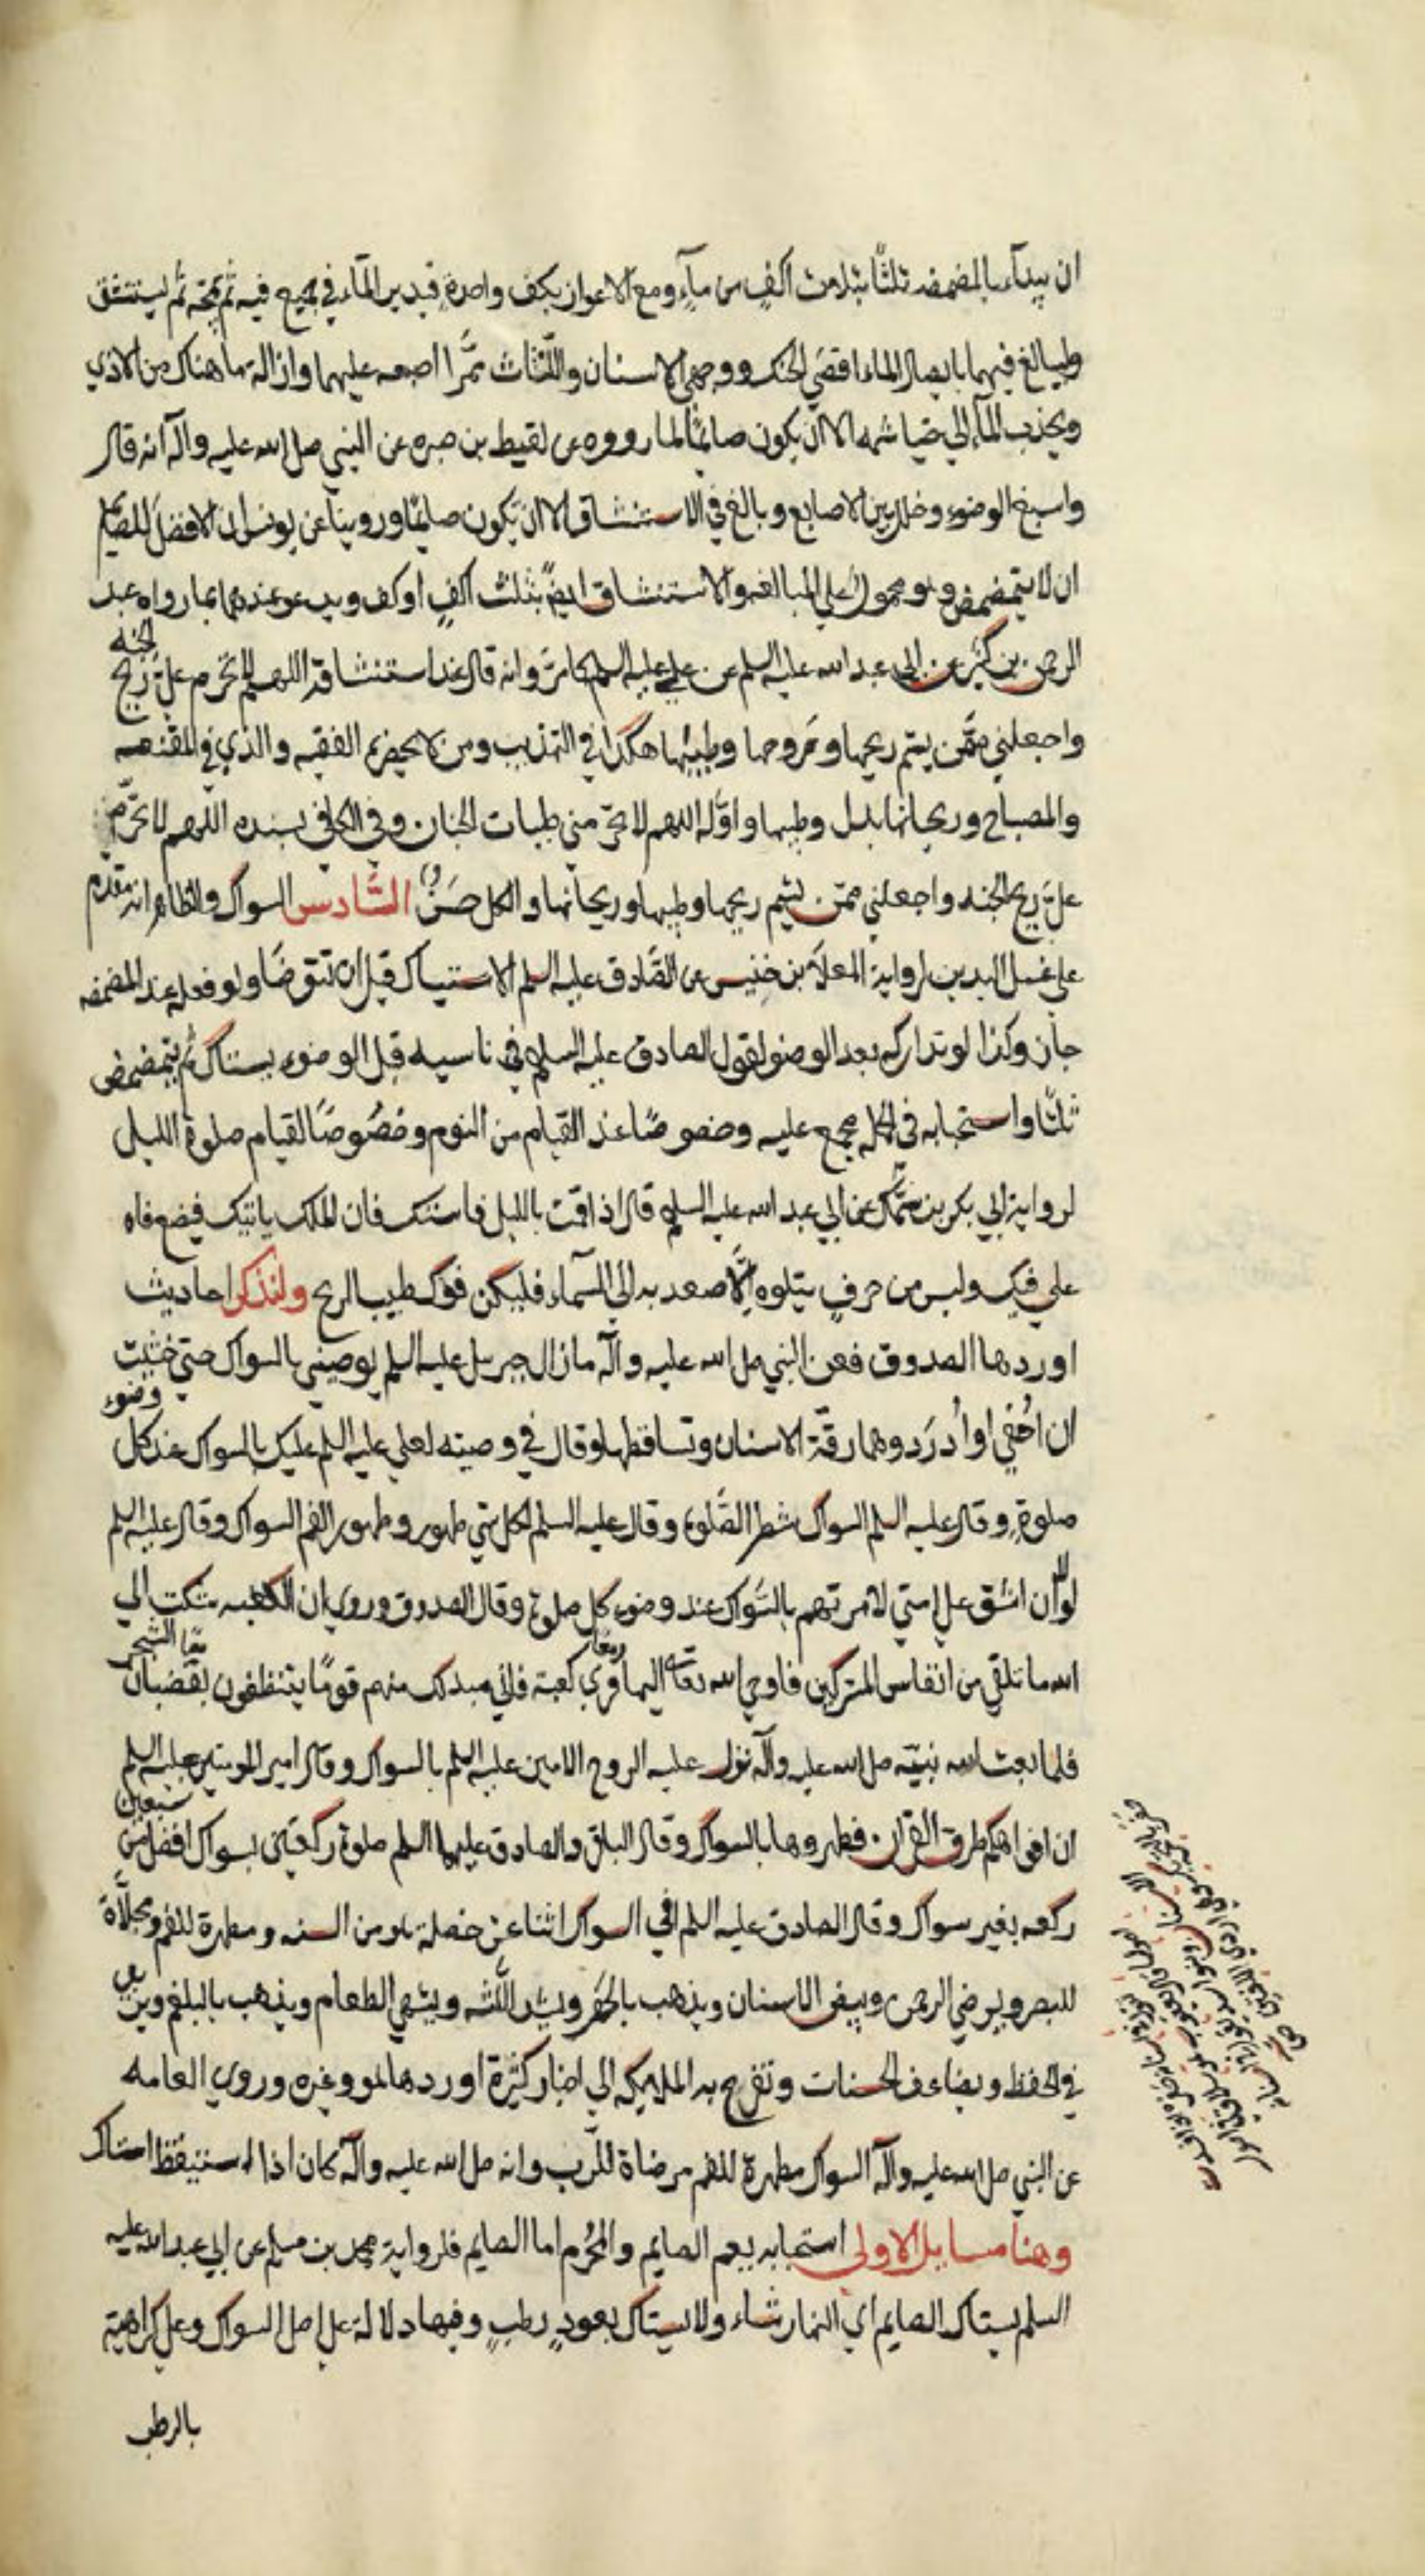 ان يبدآء بالمضمضه ثلثًا بثلاث اكفٍ من مآءٍ ومع الاعواز بكف واحدةٍ فيدير المآء في جميع فيه ثم يمجّه ثم ليستنشق
وليبالغ فيهما بايصال الماء اقصَي الحنك ووجهي الاسنان واللّثاث ممّرا اصبعه عليهما وازالة ما هناك من الاذي
ويجذب المآء الي خياشمه الا ان يكون صائمًا لما رووه عن لقيط بن صبره عن النبي صل الله عليه وآله انه قال
واسبغ الوضوء وخلل بين الاصابع وبالغ في الاستنشاق الا ان تكون صائمًا وروينا عن يونس ان الافضل للصائم
ان لا يتمضمض وهو محمول علي المبالغه والاستنشاق ايضًا بثلث اكفٍ او كف ويدعو عندهما بما رواه عبد
الرحمن بن كثير عن ابي عبد الله عليه السلم عن علي عليه السلم كما مرّ وانه قال عند استنشاقه اللهم لا تحرم عليّ ريح الجنه
واجعلني ممّن يشم ريحها وروحها وطيبها هكذا في التهذيب ومن لا يحضره الفقيه والذي في المقنعه
والمصباح وريحانها بدل وطيبها واوّله اللهم لا تحرّمني طيبات الجنان وفي الكافي بسنده اللهم لا تحرّم
عليّ ريح الجنه واجعلني ممّن يشم ريحها وطيبها وريحانها والكل حسَنٌ السّادس السواك والظاهر انه مقدم
علي غسل اليدين لرواية المعلّا بن خنيس عن الصّادق عليه السلم الاستياك قبل ان تتوضّا ولو فعله عند المضمضه
جاز وكذا لو تداركه بعد الوضوء لقول الصادق عليه السلم في ناسيه قبل الوضوء يستاك ثم يتمضمض
ثلثًا واستحبابه في الكل مجمع عليه وخصوصًا عند القيام من النوم وخصُوصًا لقيام صلوة الليل
لرواية ابي بكر بن سمّاك عن ابي عبد الله عليه السلم قال اذا قمت بالليل فاستك فان الملك ياتيك فيضع فاه
علي فيك وليس من حرفٍ تتلوه الّا صعد به الي السمآء فليكن فوك طيب الريح ولنذكر احاديث
اوردها الصدوق فعن النبي صل الله عليه وآله ما زال جبريل عليه السلم يوصيني بالسواك حتي خشيت
ان احُفي او أدرَد وهما رقّة الاسنان وتساقطها وقال في وصيته لعلي عليه السلم عليك بالسواك عند كل وضوء
صلوةٍ وقال عليه السلم السواك شطر الصّلوة وقال عليه السلم لكل شي طهور وطهور الفم السواك وقال عليه السلم
لولا ان اشق علي امتي لامرتهم بالسّواك عند وضوء كل صلوة وقال الصدوق وروي ان الكعبه شكت الي
الله ما تلقي من انفاس المشركين فاوحي الله تعالي اليها قري كعبة فاني مبدلك منهم قومًا يتنظفون بقضبان الشجر
فلما بعث الله نبيّه صل الله عليه وآله نزل عليه الروح الامين عليه السلم بالسواك وقال امير المومنين عليه السلم
ان افواهكم طرق القرآن فطهروها بالسواك وقال الباقر والصادق عليهما السلم صلوة ركعتين بسواك افضل من سبعين
ركعه بغير سواك وقال الصادق عليه السلم في السواك اثنا عشر خصلة هو من السنه ومطهرة للفم ومجلاة
للبصر ويرضي الرحمن ويبيض الاسنان ويذهب بالحَفَر ويشد اللّثه ويشهي الطعام ويذهب بالبلغم ويزيد
في الحفظ ويضاعف الحسنات وتفرح به الملايكه الي اخبار كثيرة اوردها هو وغيره وروي العامه
عن النبي صل الله عليه وآله السواك مطهرة للفم مرضاة للّرب وانه صل الله عليه وآله كان اذا استيقظ استاك
وهنا مسايل الاولي استحبابه يعم الصايم والمحُرم اما الصايم فلرواية محمد بن مسلم عن ابي عبد الله عليه
السلم يستاك الصايم اي النهار شاء ولا يستاك بعودٍ رطبٍ وفيها دلالة علي اصل السواك وعلي كراهية
بالرطب